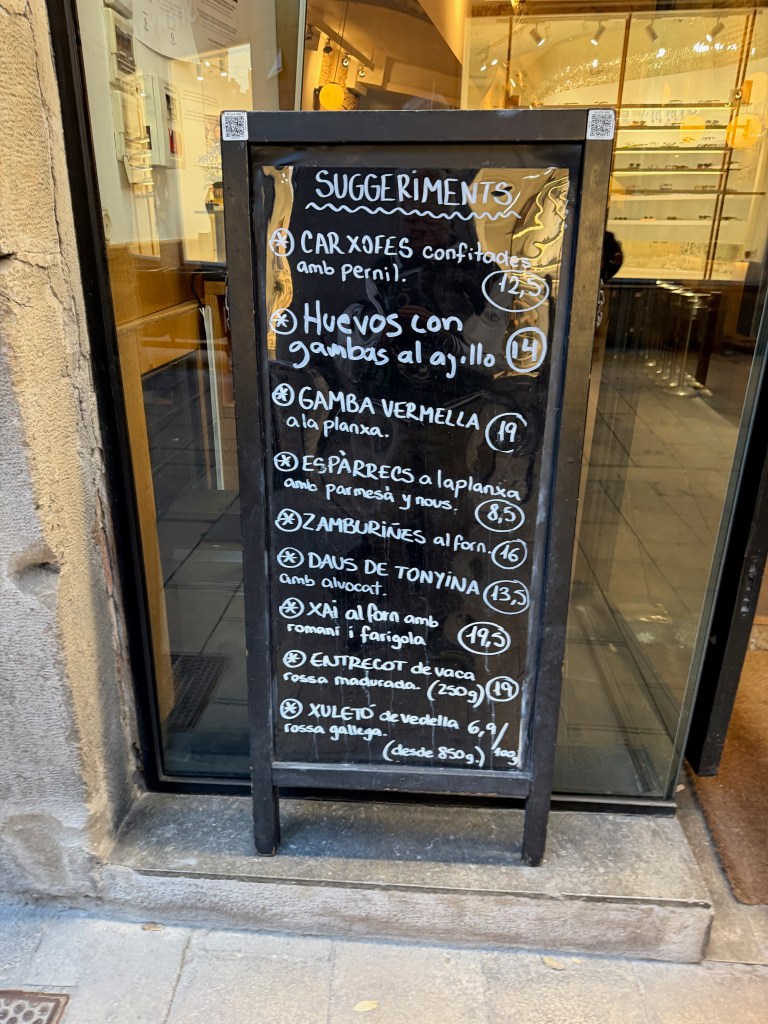 SUGGERIMENTS
CARXOFES confitades
amb pernil. 12,5
Huevos con
gambas al ajillo 14
GAMBA VERMELLA
a la planxa. 19
ESPÀRRECS a la planxa
amb parmesà y nous. 8,5
ZAMBURIÑES al forn. 16
DAUS DE TONYINA
amb alvocat. 13,5
XAi al forn amb
romaní i farigola 19,5
ENTRECOT de vaca
rossa madurada. (250g) 19
XULETÓ de vedella 6,9/
rossa gallega. 100g
(desde 850g.)